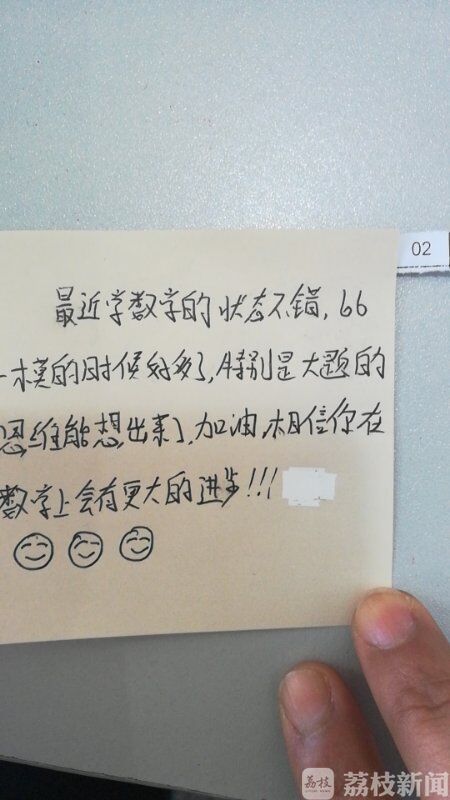 02
最近学数学的状态不错,比
一模的时候好多了,特别是大题的
思维能想出来了,加油,相信你在
数学上会有更大的进步!!!
荔枝
荔枝新闻